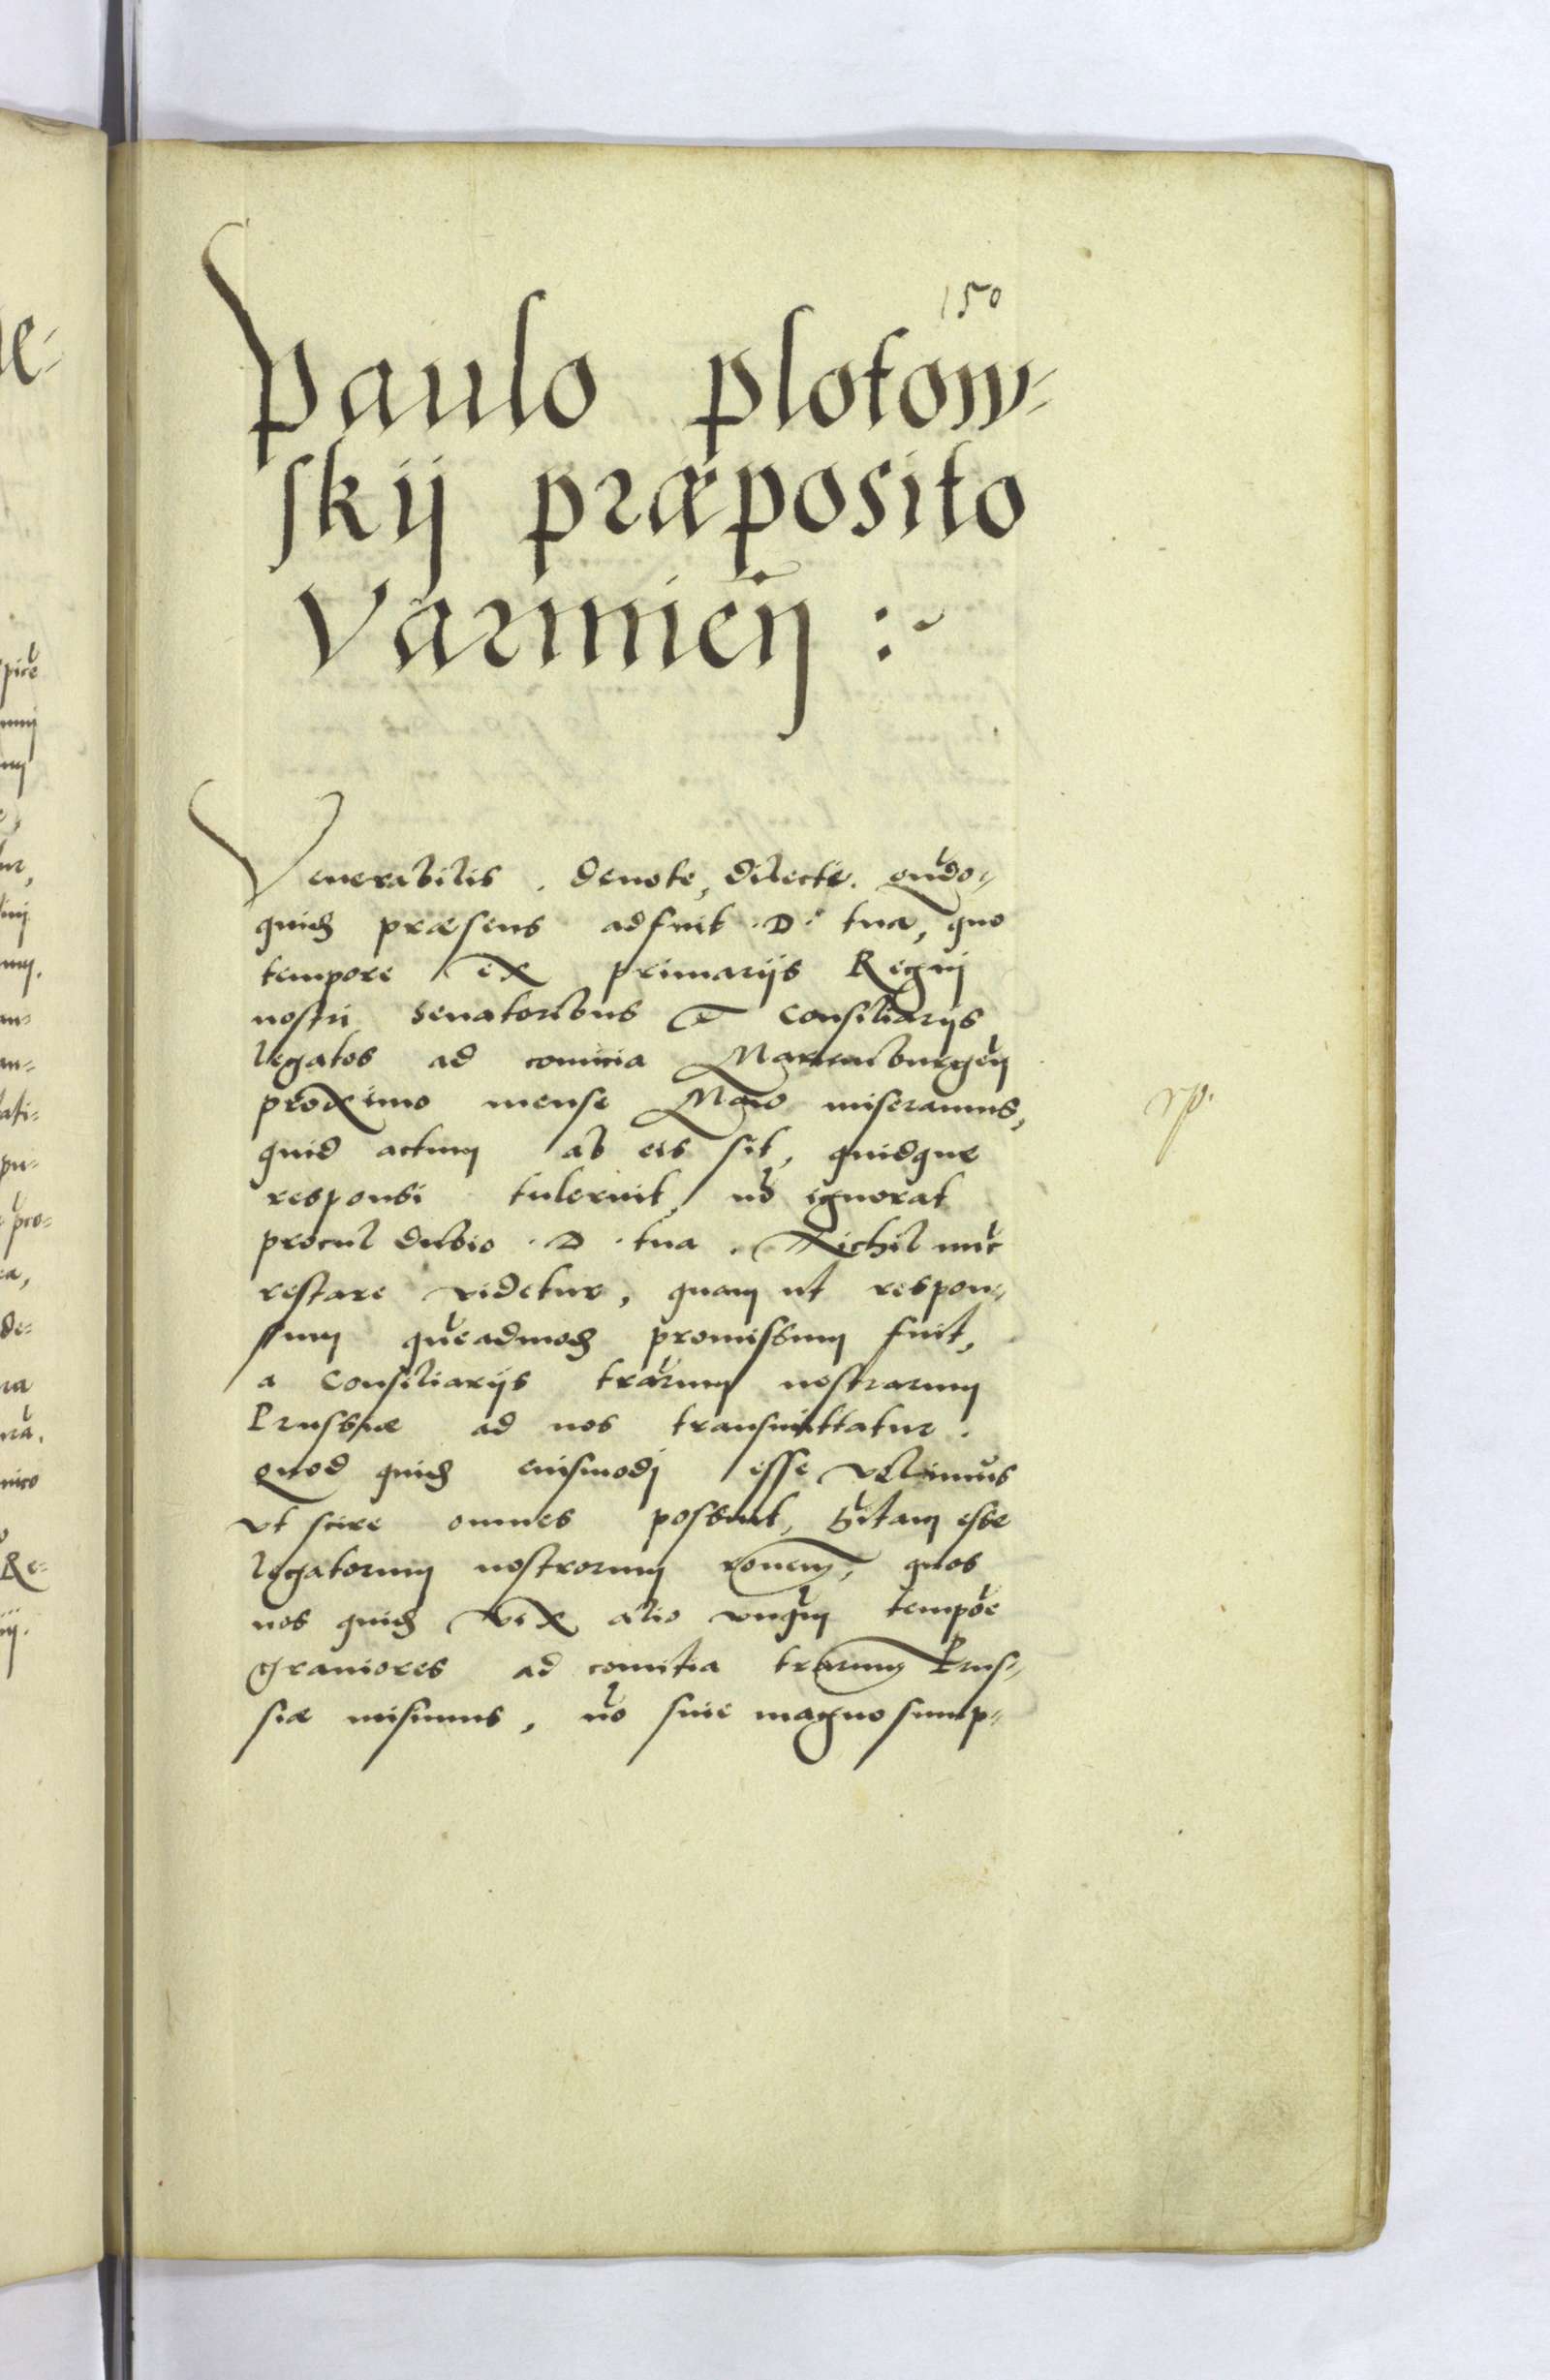 150
Paulo Plotow-
skij præposito
Varmieñ :~
Venerabilis . devote, dilecte. Qu̅do-
quidem præsens adfuit .D. tua, quo
tempore ex primarijs Regnj
nostri senatoribus et consiliarijs
legatos ad comicia Marienburgeñ
proximo mense Maio miseramus,
quid actum ab eis sit, quidque
responsi tulerint, nõ ignorat
procul dubio .D. tua . Nichil nũc
restare videtur, quam ut respon-
sum quẽadmodum promissum fuit,
a consiliarijs trãrum nostrarum
Prussiæ ad nos transmittatur.
Quod quidem eiusmodj esse vellimus
vt scire omnes possint, habitam esse
legatorum nostrorum rõnem, quos
nos quidem vix alio vnquã tempore
graviores ad comitia trãrum Prus-
siæ misimus, nõ sine magno sump-